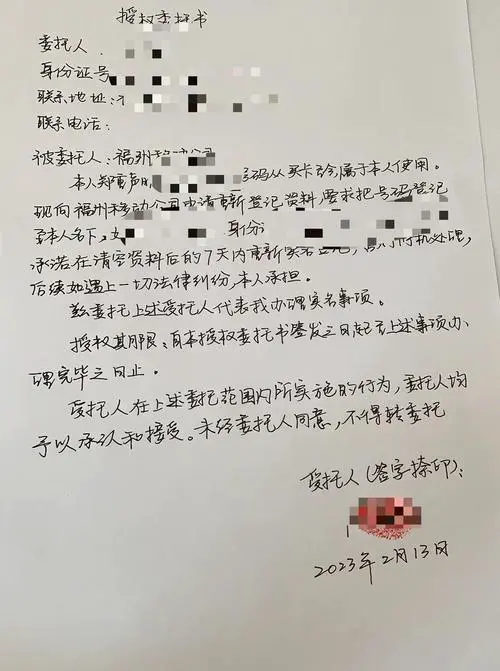 授权委托书
委托人
身份证号
联系地址:
联系电话:
被委托人:福州
本人郑重声明 号码从买卡至今属于本人使用。
现向福州移动公司申请重新登记资料,要求把号码登记
至本人名下, 身份
承诺在清空资料后的7天内重新实名登记, 停机处理,
后续如遇上一切法律纠纷,本人承担。
兹委托上述受托人代表我办理实名事项。
授权其期限:自本授权委托书签发之日起至上述事项办
理完毕之日止。
受托人在上述委托范围内所实施的行为,委托人均
予以承认和接受。未经委托人同意,不得转委托
受托人(签字捺印):
2023年2月13日